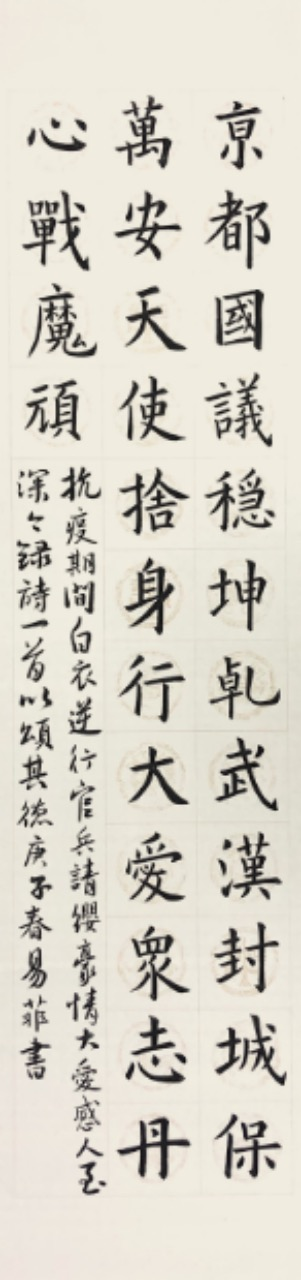 京都國議穩坤乹武漢封城保
萬安天使捨身行大愛衆志丹
心戰魔頑
抗疫期間白衣逆行官兵請纓豪情大愛感人至
深今録詩一首以頌其德庚子春易菲書